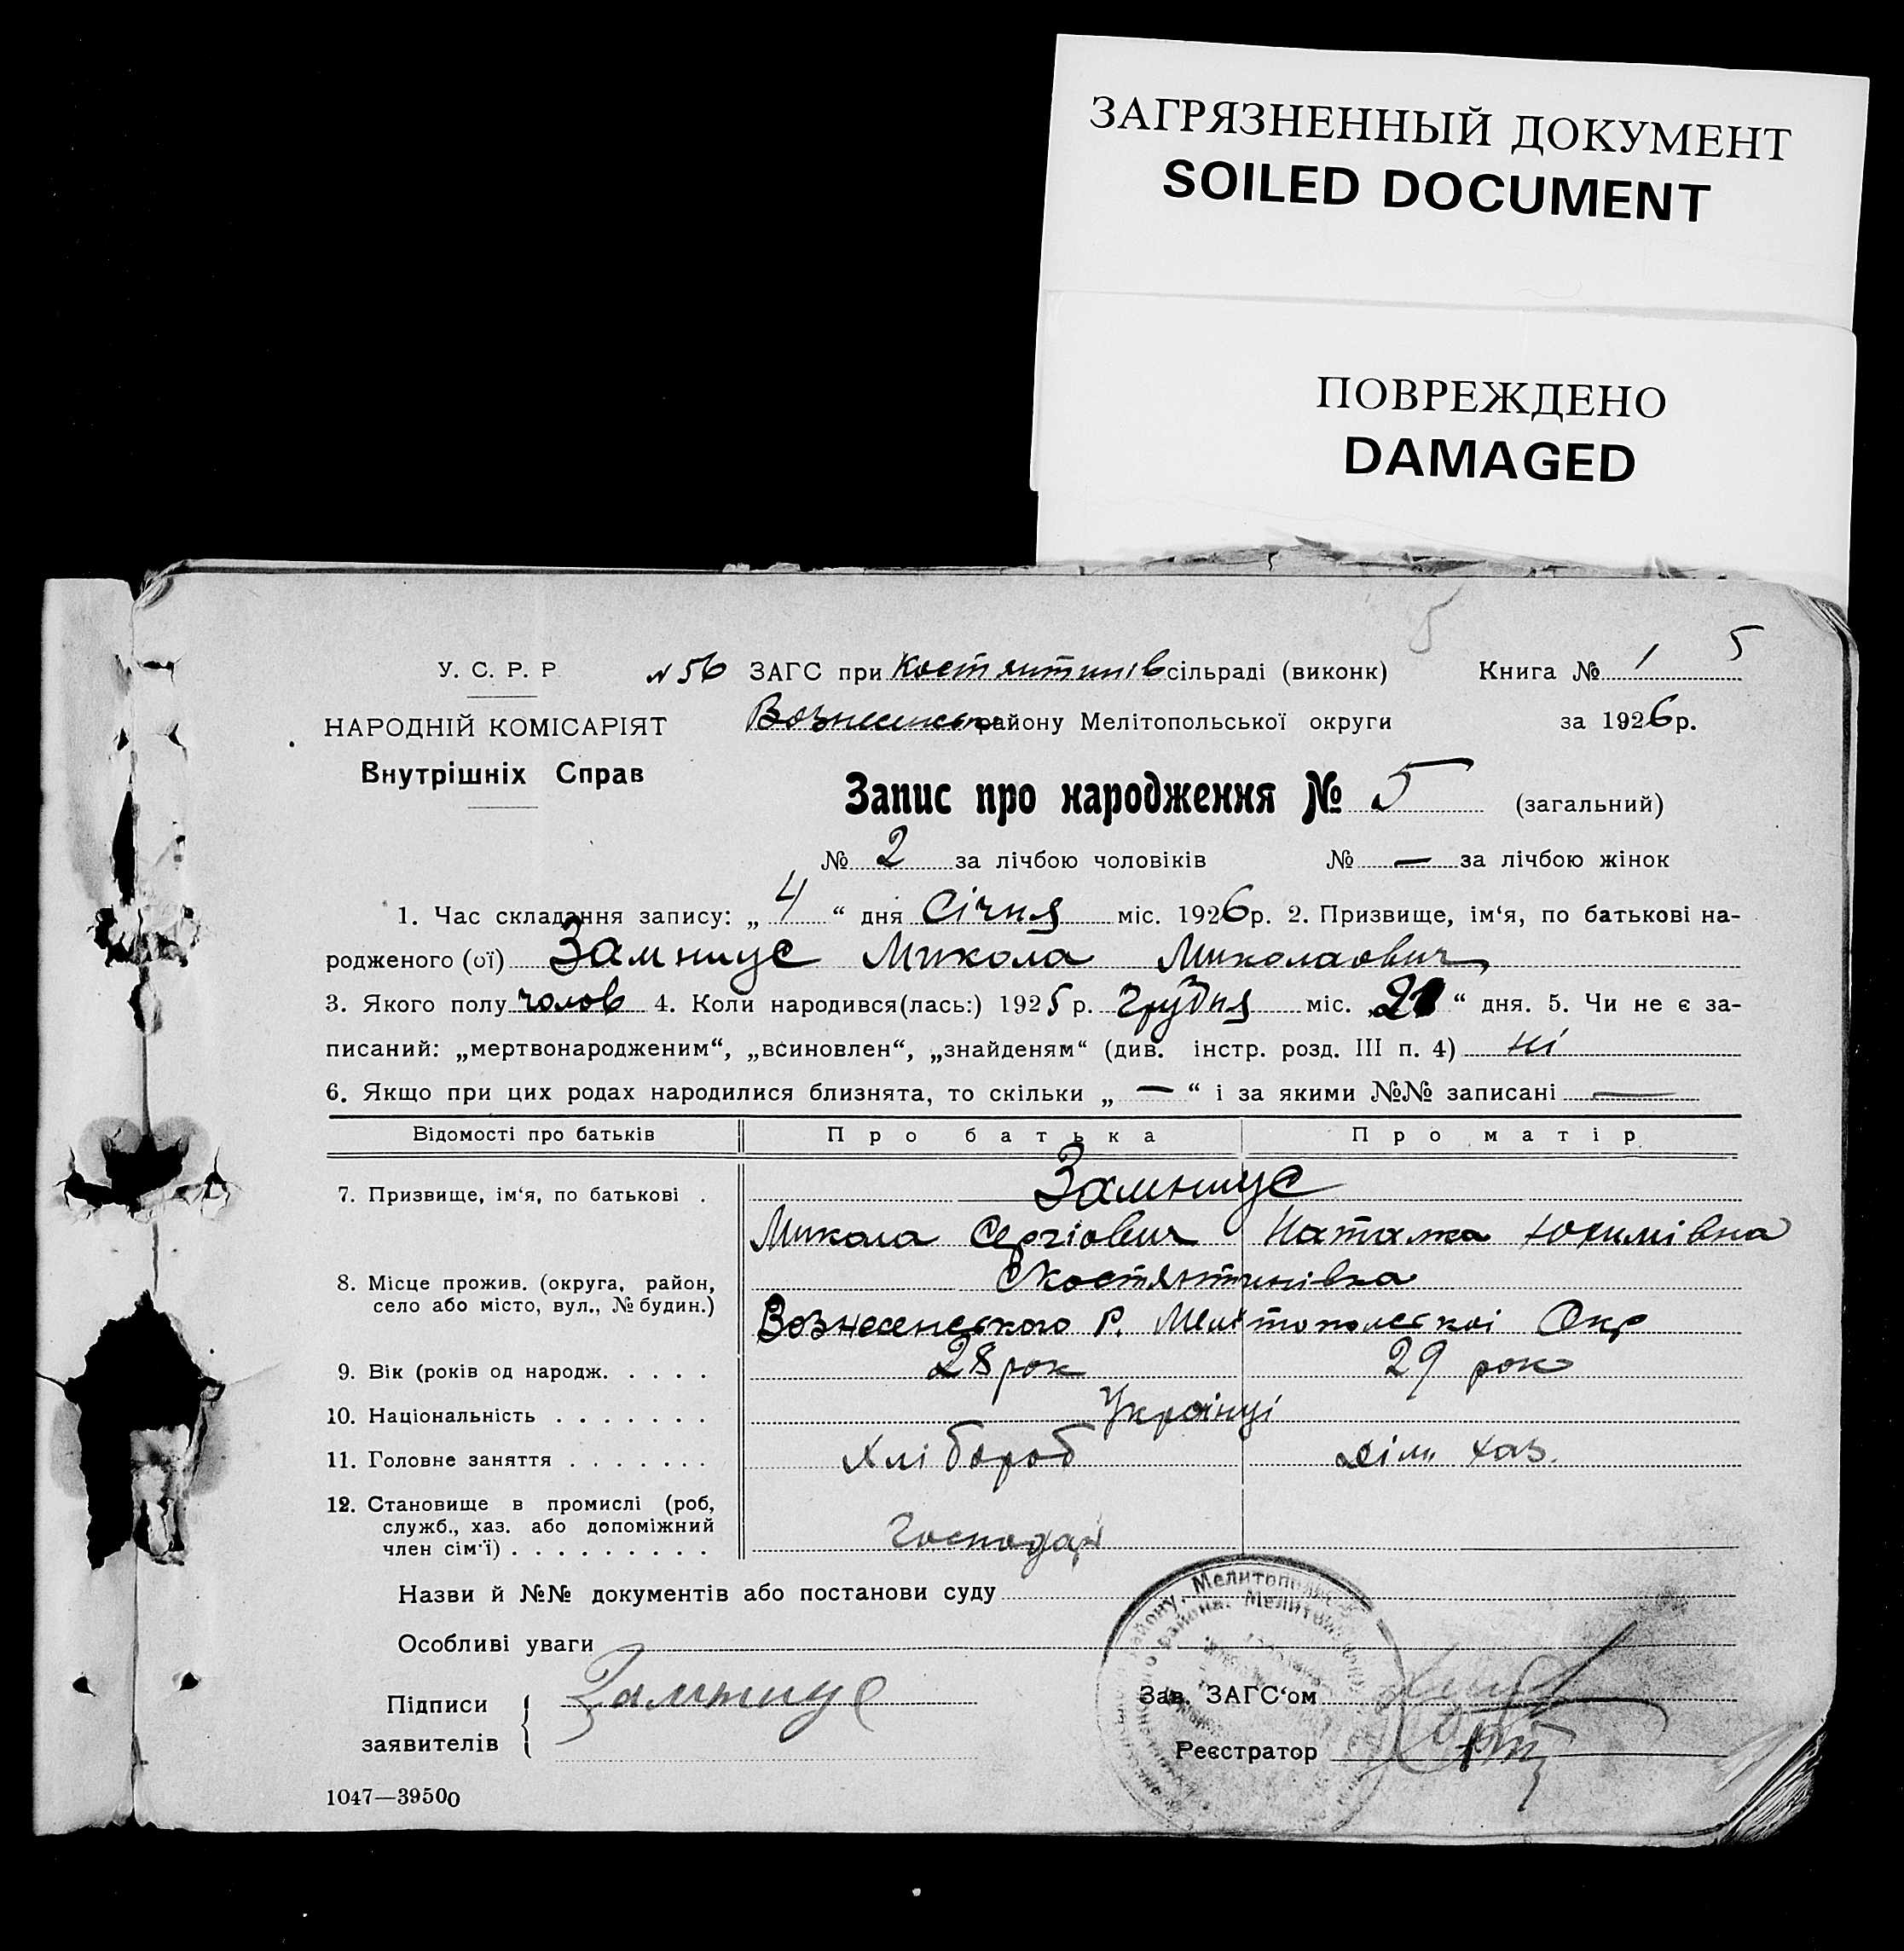 ЗАГРЯЗНЕННЫЙ ДОКУМЕНТ
SOILED DOCUMENT
ПОВРЕЖДЕНО
DAMAGED
5
5
У. С. Р. Р
N 56 ЗАГС при Костянтинів сільраді (виконк) Книга № 1
НАРОДНІЙ КОМІСАРІЯТ
Вознесенськ району Мелітопольської округи за 1926 р.
Внутрішніх Справ
Запис про народження № 5 (загальний)
№ 2 за лічбою чоловіків № — за лічбою жінок
1. Час складання запису: „ 4 “ дня Січня міс. 1926 р. 2. Призвище, ім‘я, по батькові на-
родженого (ої) Микола Миколаович
3. Якого полу чолов 4. Коли народився(лась:) 1925 р. Грудня міс. „ “ дня. 5. Чи не є за-
писаний: „мертвонародженим“, „всиновлен“, „знайденям“ (див. інстр. розд. III п. 4) ні
6. Якщо при цих родах народилися близнята, то скільки „ — “ і за якими №№ записані —
Відомості про батьків Про батька Про матір
7. Призвище, ім‘я, по батькові .
Микола Сергіович Наталка Юхимівна
8. Місце прожив. (округа, район, Костянтинівка
село або місто, вул., № будин.)
Вознесенського Р. Мелітополескоі Окр
9. Вік (років од народж. . . . . 28 рок 29 рок
10. Національність . . . . . . . Украінці
11. Головне заняття . . . . . . . Хлібороб хаз.
12. Становище в промислі (роб,
служб., хаз. або допоміжний
член сім‘ї) . . . . . . . . . Господар
Назви й №№ документів або постанови суду
Особливі уваги
Підписи
заявителів
Зав. ЗАГС‘ом
Реєстратор
1047—39500